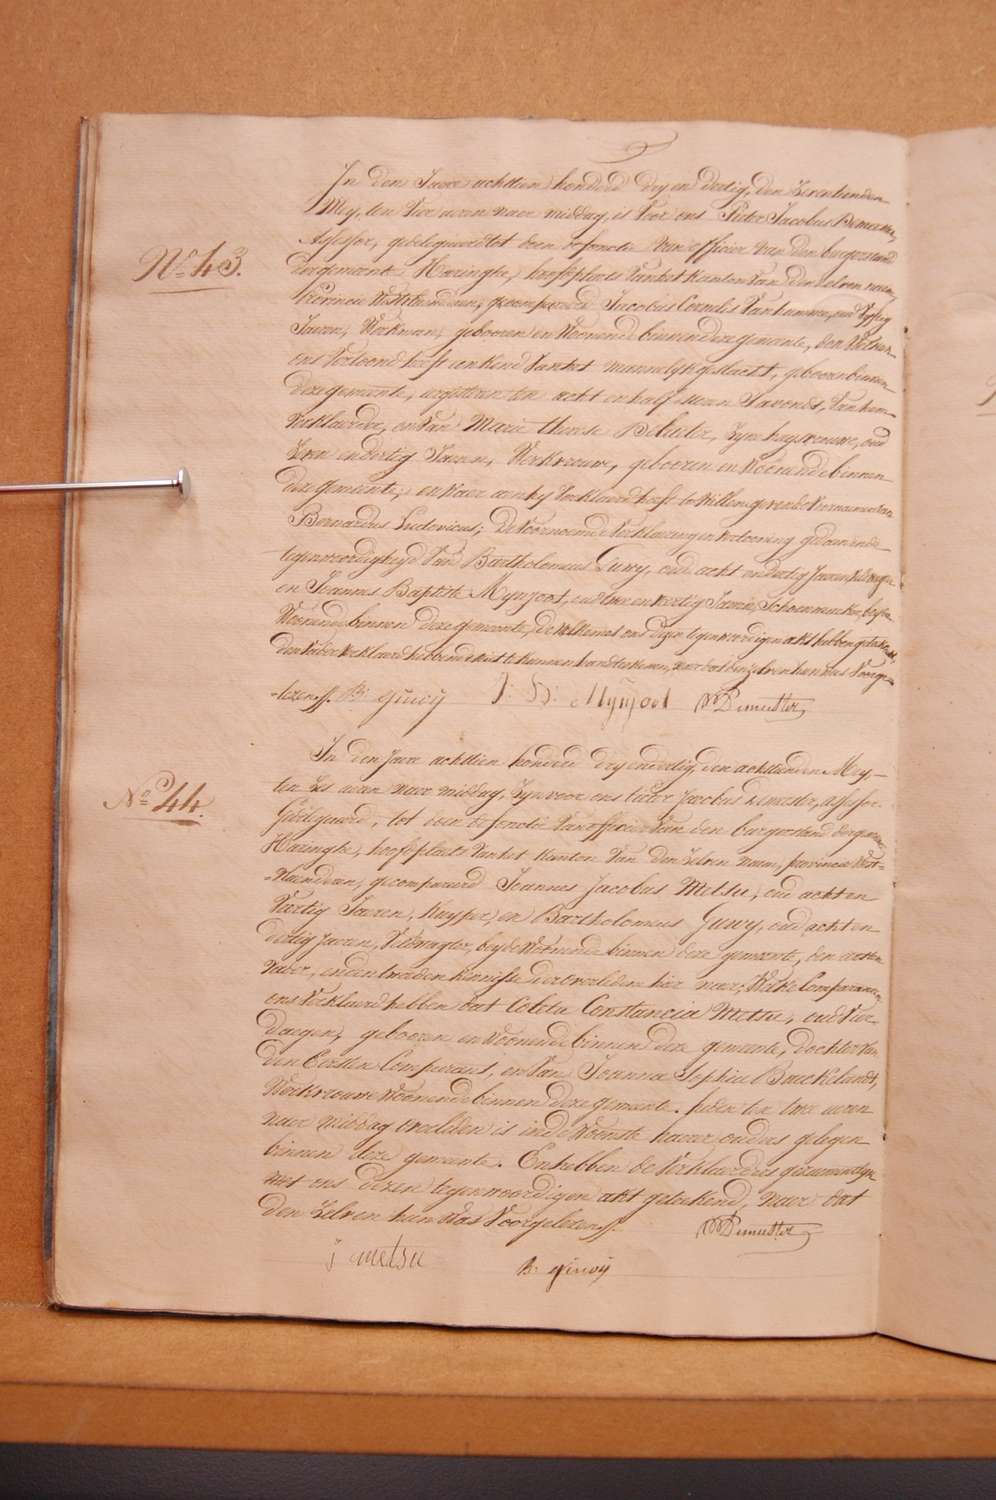 N.o 43.
In den Jaere achttien honderd dry en dertig, den zeventienden
Mey, ten vier uren naer middag, is voor ons Pieter Jacobus Demeester,
Assessor, gedelegueerd tot doen de fonctie van officier van den burgerstand
der gemeente Haringhe, hoofdplaets van het kanton van den zelven naem,
Provincie Westvlaenderen, gecompareerd Jacobus Cornelis oud vyftig
Jaeren, Werkman, geboren en woonende binnen deze gemeente, den welken
ons vertoond heeft een kind van het mannelyk geslacht, geboren binnen
deze gemeente, ten acht en half uren s'avonds, van hem
verklaerder, en van Marie Therese zyne huysvrouwe, oud
zeven en dertig Jaeren, Werkvrouw, geboren en woonende binnen
deze gemeente, en waer aen hy verklaerd heeft te willen geven de voornaemen van
Bernardus Ludovicus; de voornoemde verklaring en vertooning gedaen in de
tegenwoordigheyd van Bartholomeus Guwy, oud acht en dertig Jaeren veldwagter
en Joannes Baptiste Mynjoot, oud en veertig Jaeren, Schoenmaker, beyde
woonende binnen deze gemeente, de welke met ons dezen tegenwoordigen akt hebben geteekend,
den vader verklaerd hebbende niet te kunnen naer dat den zelven hun was voorge-
-lezen ff. B: guwÿ J: B: Mynjoot PDemeester
N.o 44.
In den Jaere achttien honderd dry en dertig, den achttienden Mey
ten zes uren naer middag, zyn voor ons Pieter Jacobus Demeester, assessor
Gedelegueerd, tot doen de fonctie van officier van den burgerstand der gemeente
Haringhe, hoofdplaets van het kanton van den zelven naem, provincie West-
-vlaenderen, gecompareerd Joannes Jacobus Metsu, oud acht en
veertig Jaeren, kuyper, en Bartholomeus Guwy, oud acht en
dertig Jaeren, veldwagter, beyde woonende binnen deze gemeente, den eersten
vader, en den tweeden kennisse der overledene hier naer; Welke Comparanten
ons verklaerd hebben dat Coleta Constancia Metsu, oud vier
daegen, geboren en woonende binnen deze gemeente, dochter van
den Eersten Comparant, en van Joanna Sophia Bouckelandt,
Werkvrouwe woonende binnen deze gemeente. heden ten twee uren
naer middag overleden is in de Woonste haerer ouders gelegen
binnen deze gemeente. En hebben de verklaerders gezaementlyk
met ons dezen tegenwoordigen akt geteekend, naer dat
den zelven hun was voorgelezen ff. PDemeester
j metsu B: guwÿ